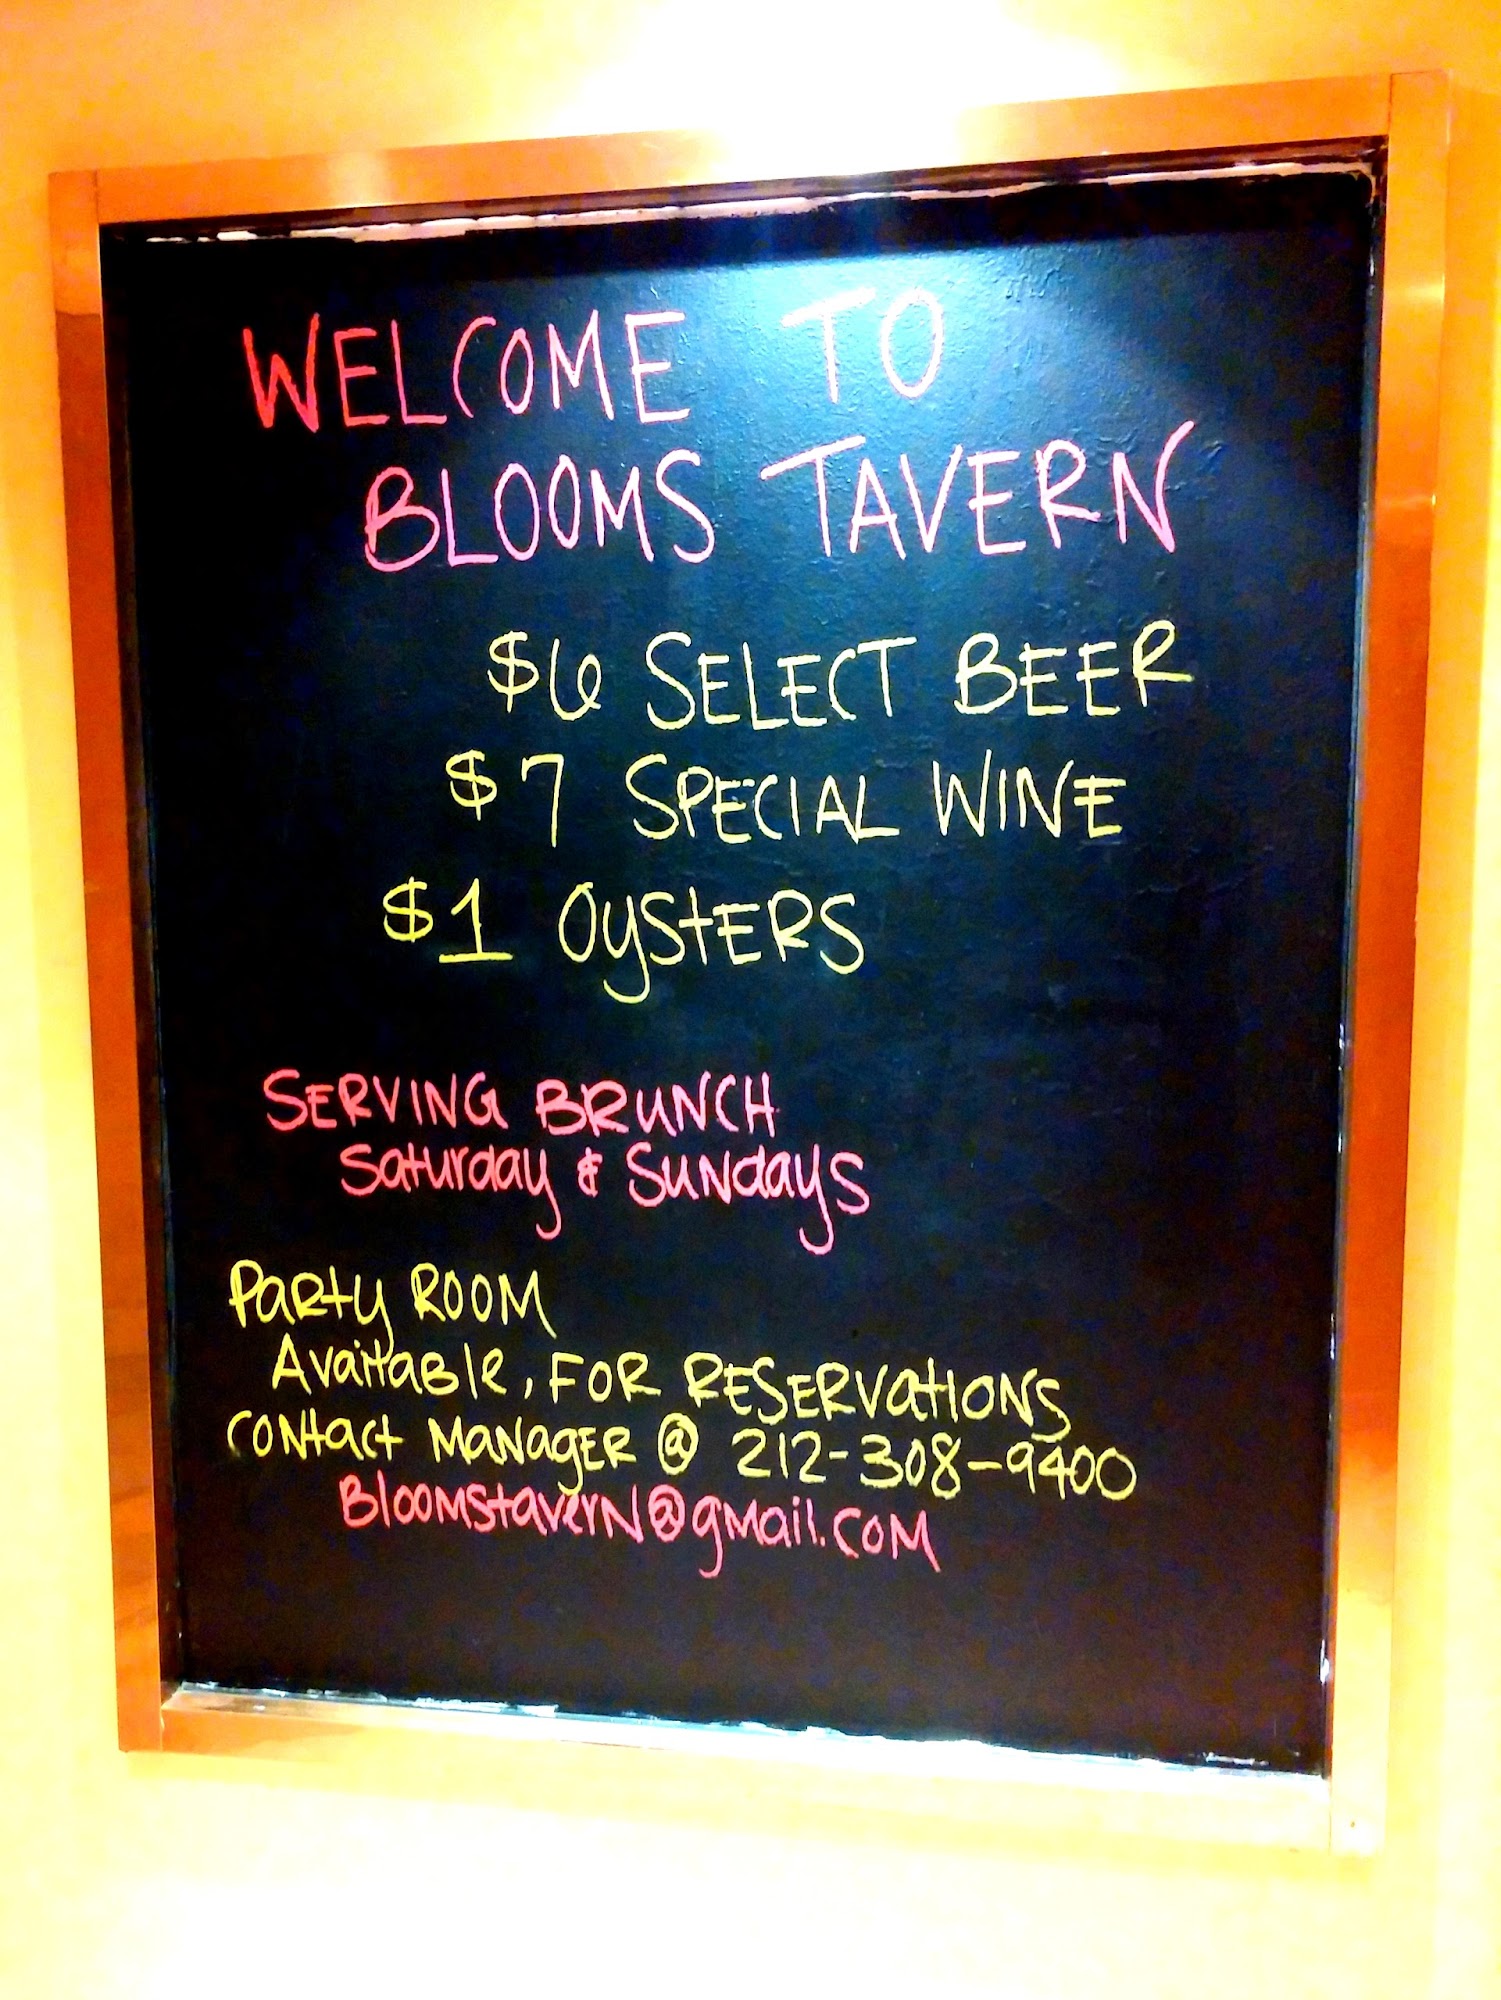 WELCOME TO
BLOOMS TAVERN
$6 SELECT BEER
$7 SPECIAL WINE
$1 OYSTERS
SERVING BRUNCH
Saturday & SUNdayS
PARty ROOM
AvailaBle, FOR RESERVatIONS
CONtact MaNagER @ 212-308-9400
BloomstaverN@gmail.com